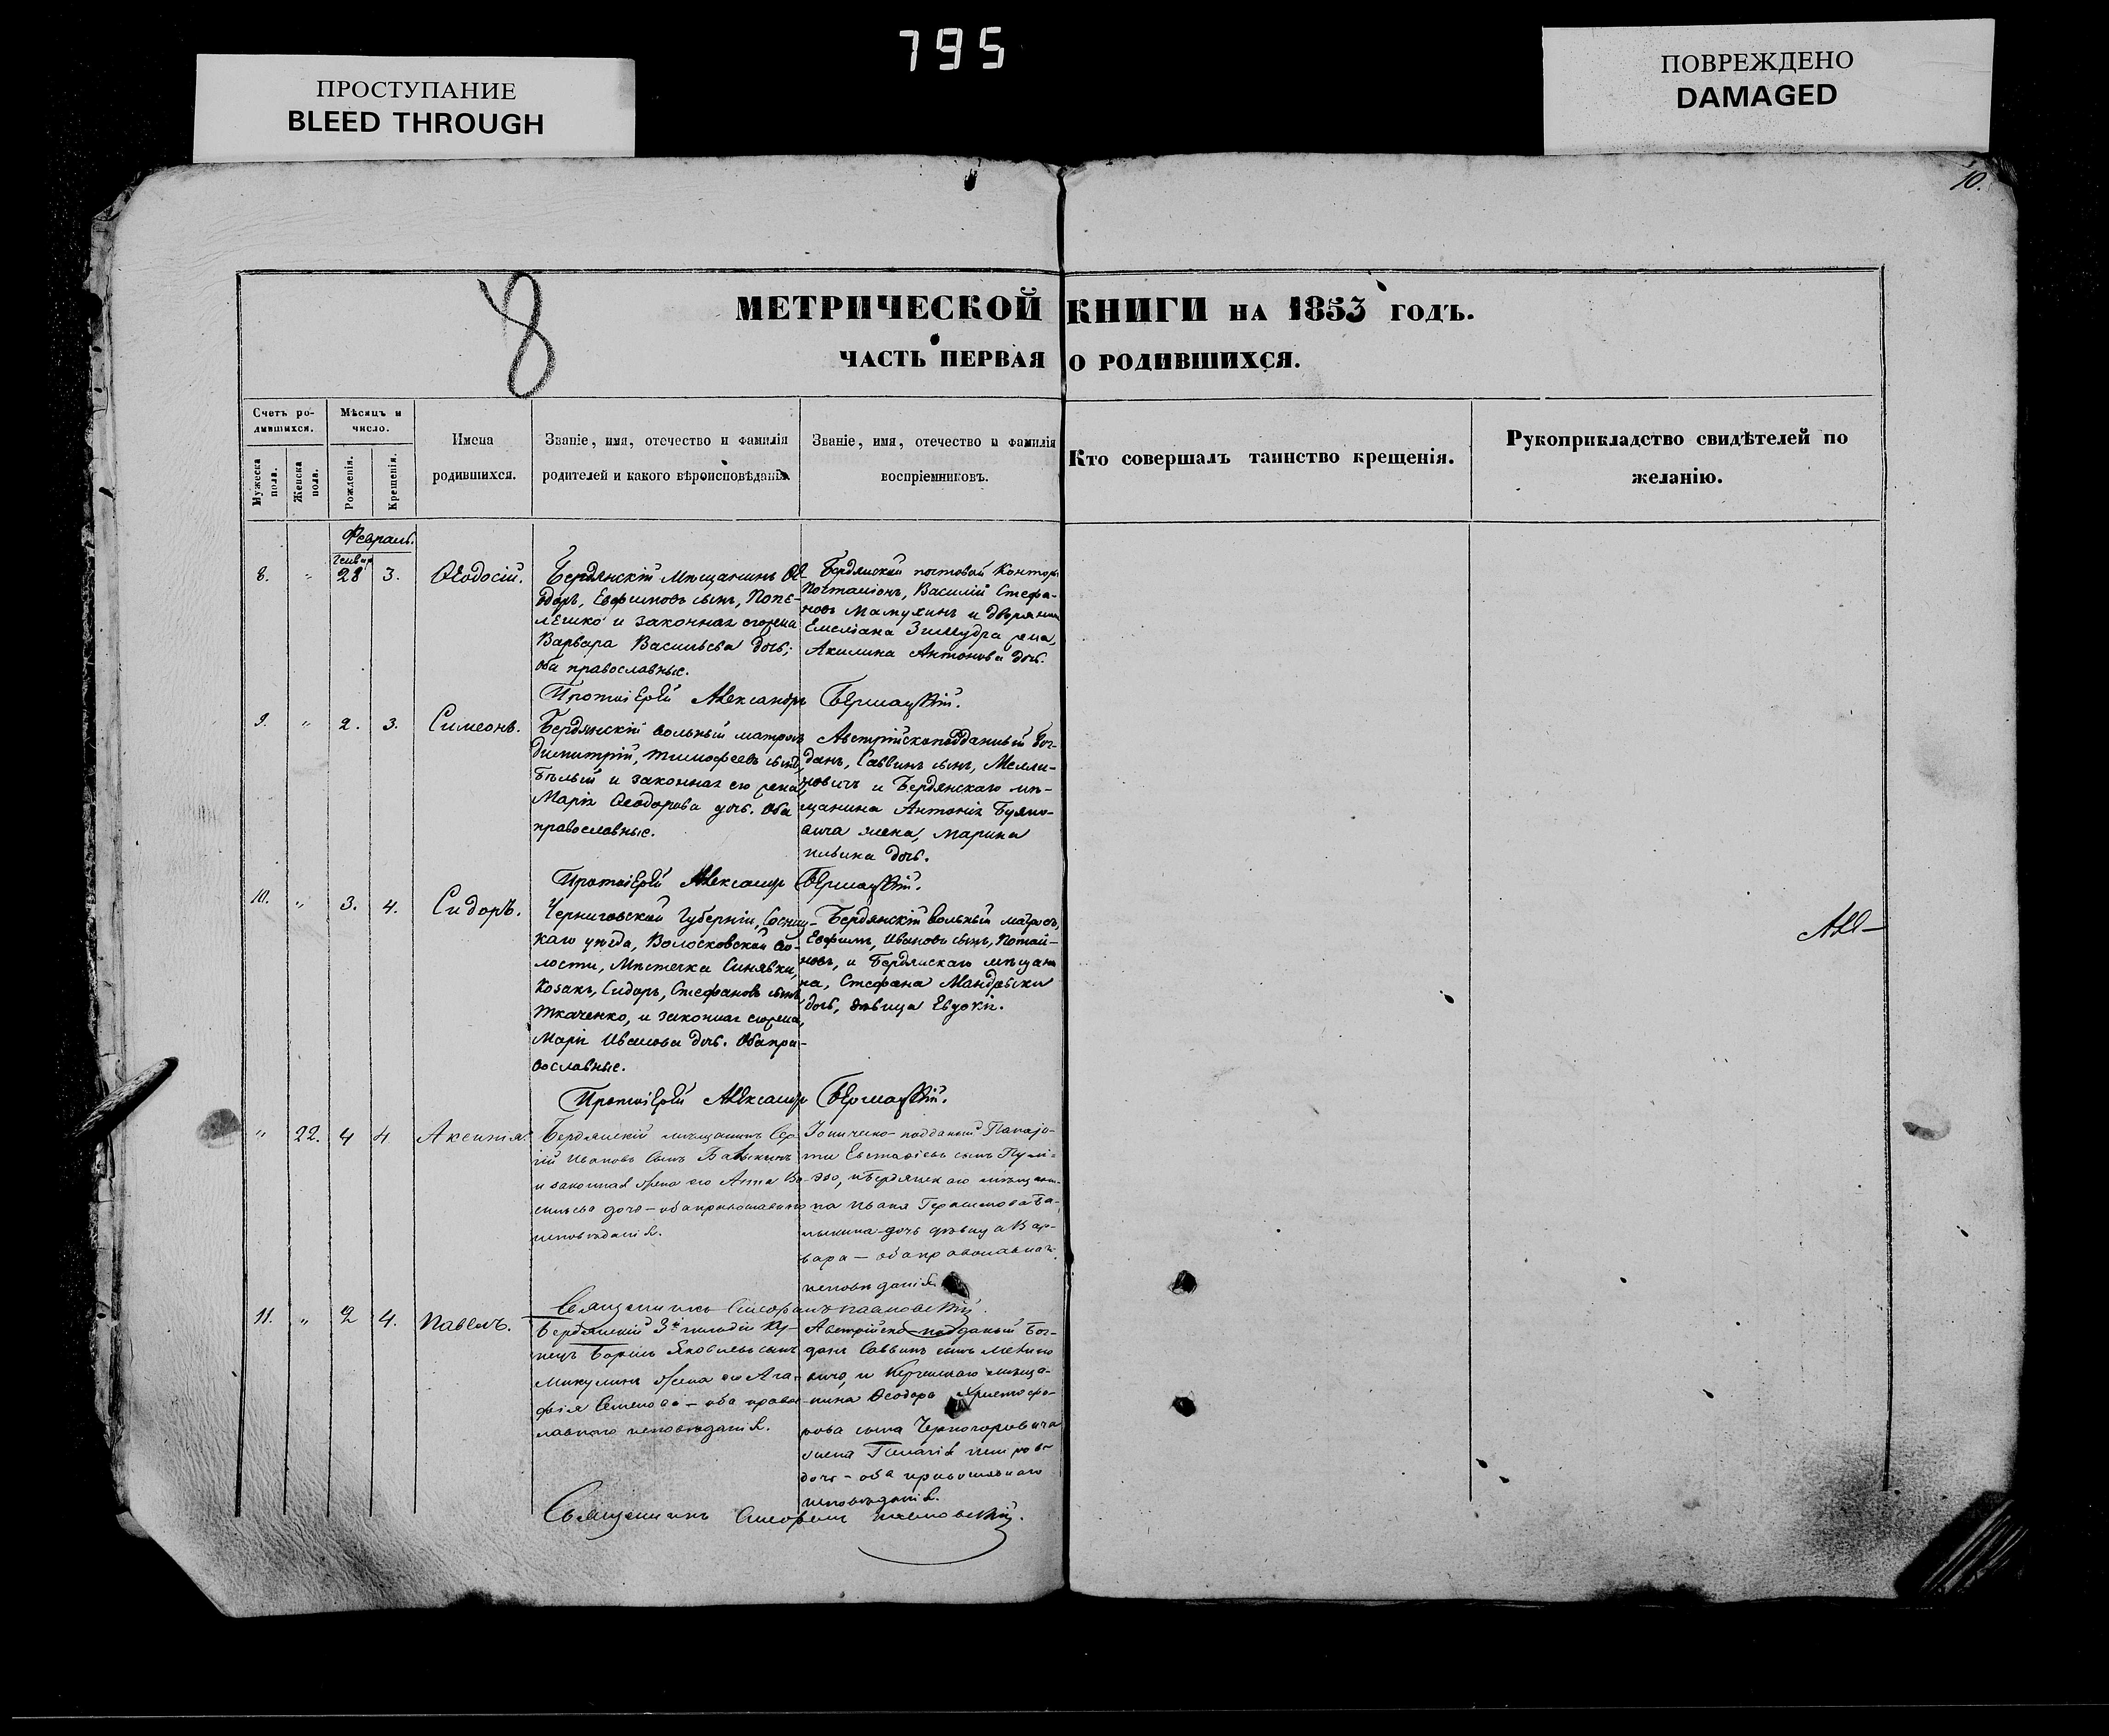 795
ПРОСТУПАНИЕ
BLEED THROUGH
ПОВРЕЖДЕНО
DAMAGED
10.
8
МЕТРИЧЕСКОЙ КНИГИ НА 1853 ГОДЪ.
ЧАСТЬ ПЕРВАЯ О РОДИВШИХСЯ.
Счетъ ро-
дившихся.
Мужеска пола.
Женска пола.
Мѣсяцъ и
число.
Рожденія.
Крещенія.
Имена
родившихся.
Званіе, имя, отечество и фамилія
родителей и какого вѣроисповѣданія.
Званіе, имя, отечество и фамилія
воспріемниковъ.
Кто совершалъ таинство крещенія.
Рукоприкладство свидѣтелей по
желанію.
Февраль.
8. " Генвар 28 3. Ѳеодосій.
Бердянскій Мѣщанинъ Ѳе-
одоръ, Евфимовъ сынъ, Попе-
лешко и законная его жена
Варвара Васильева дочь;
оба православные.
Бердянской почтовой Конторы
Почталіонъ, Василій Стефа-
новъ Мамухинъ и дворянина
Емеліана жена,
Акилина Антонова дочь.
Протоіерей Александръ
9. " 2. 3. Симеонъ.
Бердянскій вольный матросъ
Димитрій, Тимофеевъ сынъ,
Бѣлый и законная его жена
Марія Ѳеодорова дочь. Оба
православные.
Австрійскоподданный Бог-
данъ, Саввинъ сынъ, Мели-
новичъ и Бердянскаго мѣ-
щанина Антонія Буяно-
вича жена, Марина
Ильина дочь.
Протоіерей Александръ
10. " 3. 4. Сидоръ.
Черниговской Губерніи, Сосниц-
каго уѣзда, Волосковской во-
лости, Мѣстечка Синявки,
Козакъ, Сидоръ, Стефановъ сынъ
Ткаченко, и законная его жена,
Марія Иванова дочь. Оба пра-
вославные.
Бердянскій вольный матросъ,
Евфимъ, Ивановъ сынъ, Потай-
новъ, и Бердянскаго мѣщани
на, Стефана
дочь, дѣвица Евдокія.
Протоіерей Александръ
" 22. 4 4 Аксинія.
Бердянскій мѣщанинъ Сер-
гій Ивановъ сынъ
и законная жена его Анна Ва-
сильева дочь – оба православнаго
исповѣданія.
Іонически-подданный Панаіо-
ти Евстафіевъ сынъ
и Бердянскаго мѣщани-
на Ивана Герасимова
дочь дѣвица Вар-
вара – оба православнаго
исповѣданія.
Священникъ
11. " 2 4. Павелъ.
Бердянскій 3й гильдіи ку-
пецъ Борисъ Яковлевъ сынъ
Микулинъ жена его Ага-
фія Семенова – оба правос-
лавнаго исповѣданія.
Австрійско-подданый Бог-
данъ Саввинъ сынъ Мелино
вичъ, и Керченскаго мѣща-
нина Ѳеодора Христофо-
рова сына Черногоровича
жена Пелагія
дочь – оба православнаго
исповѣданія.
Священникъ